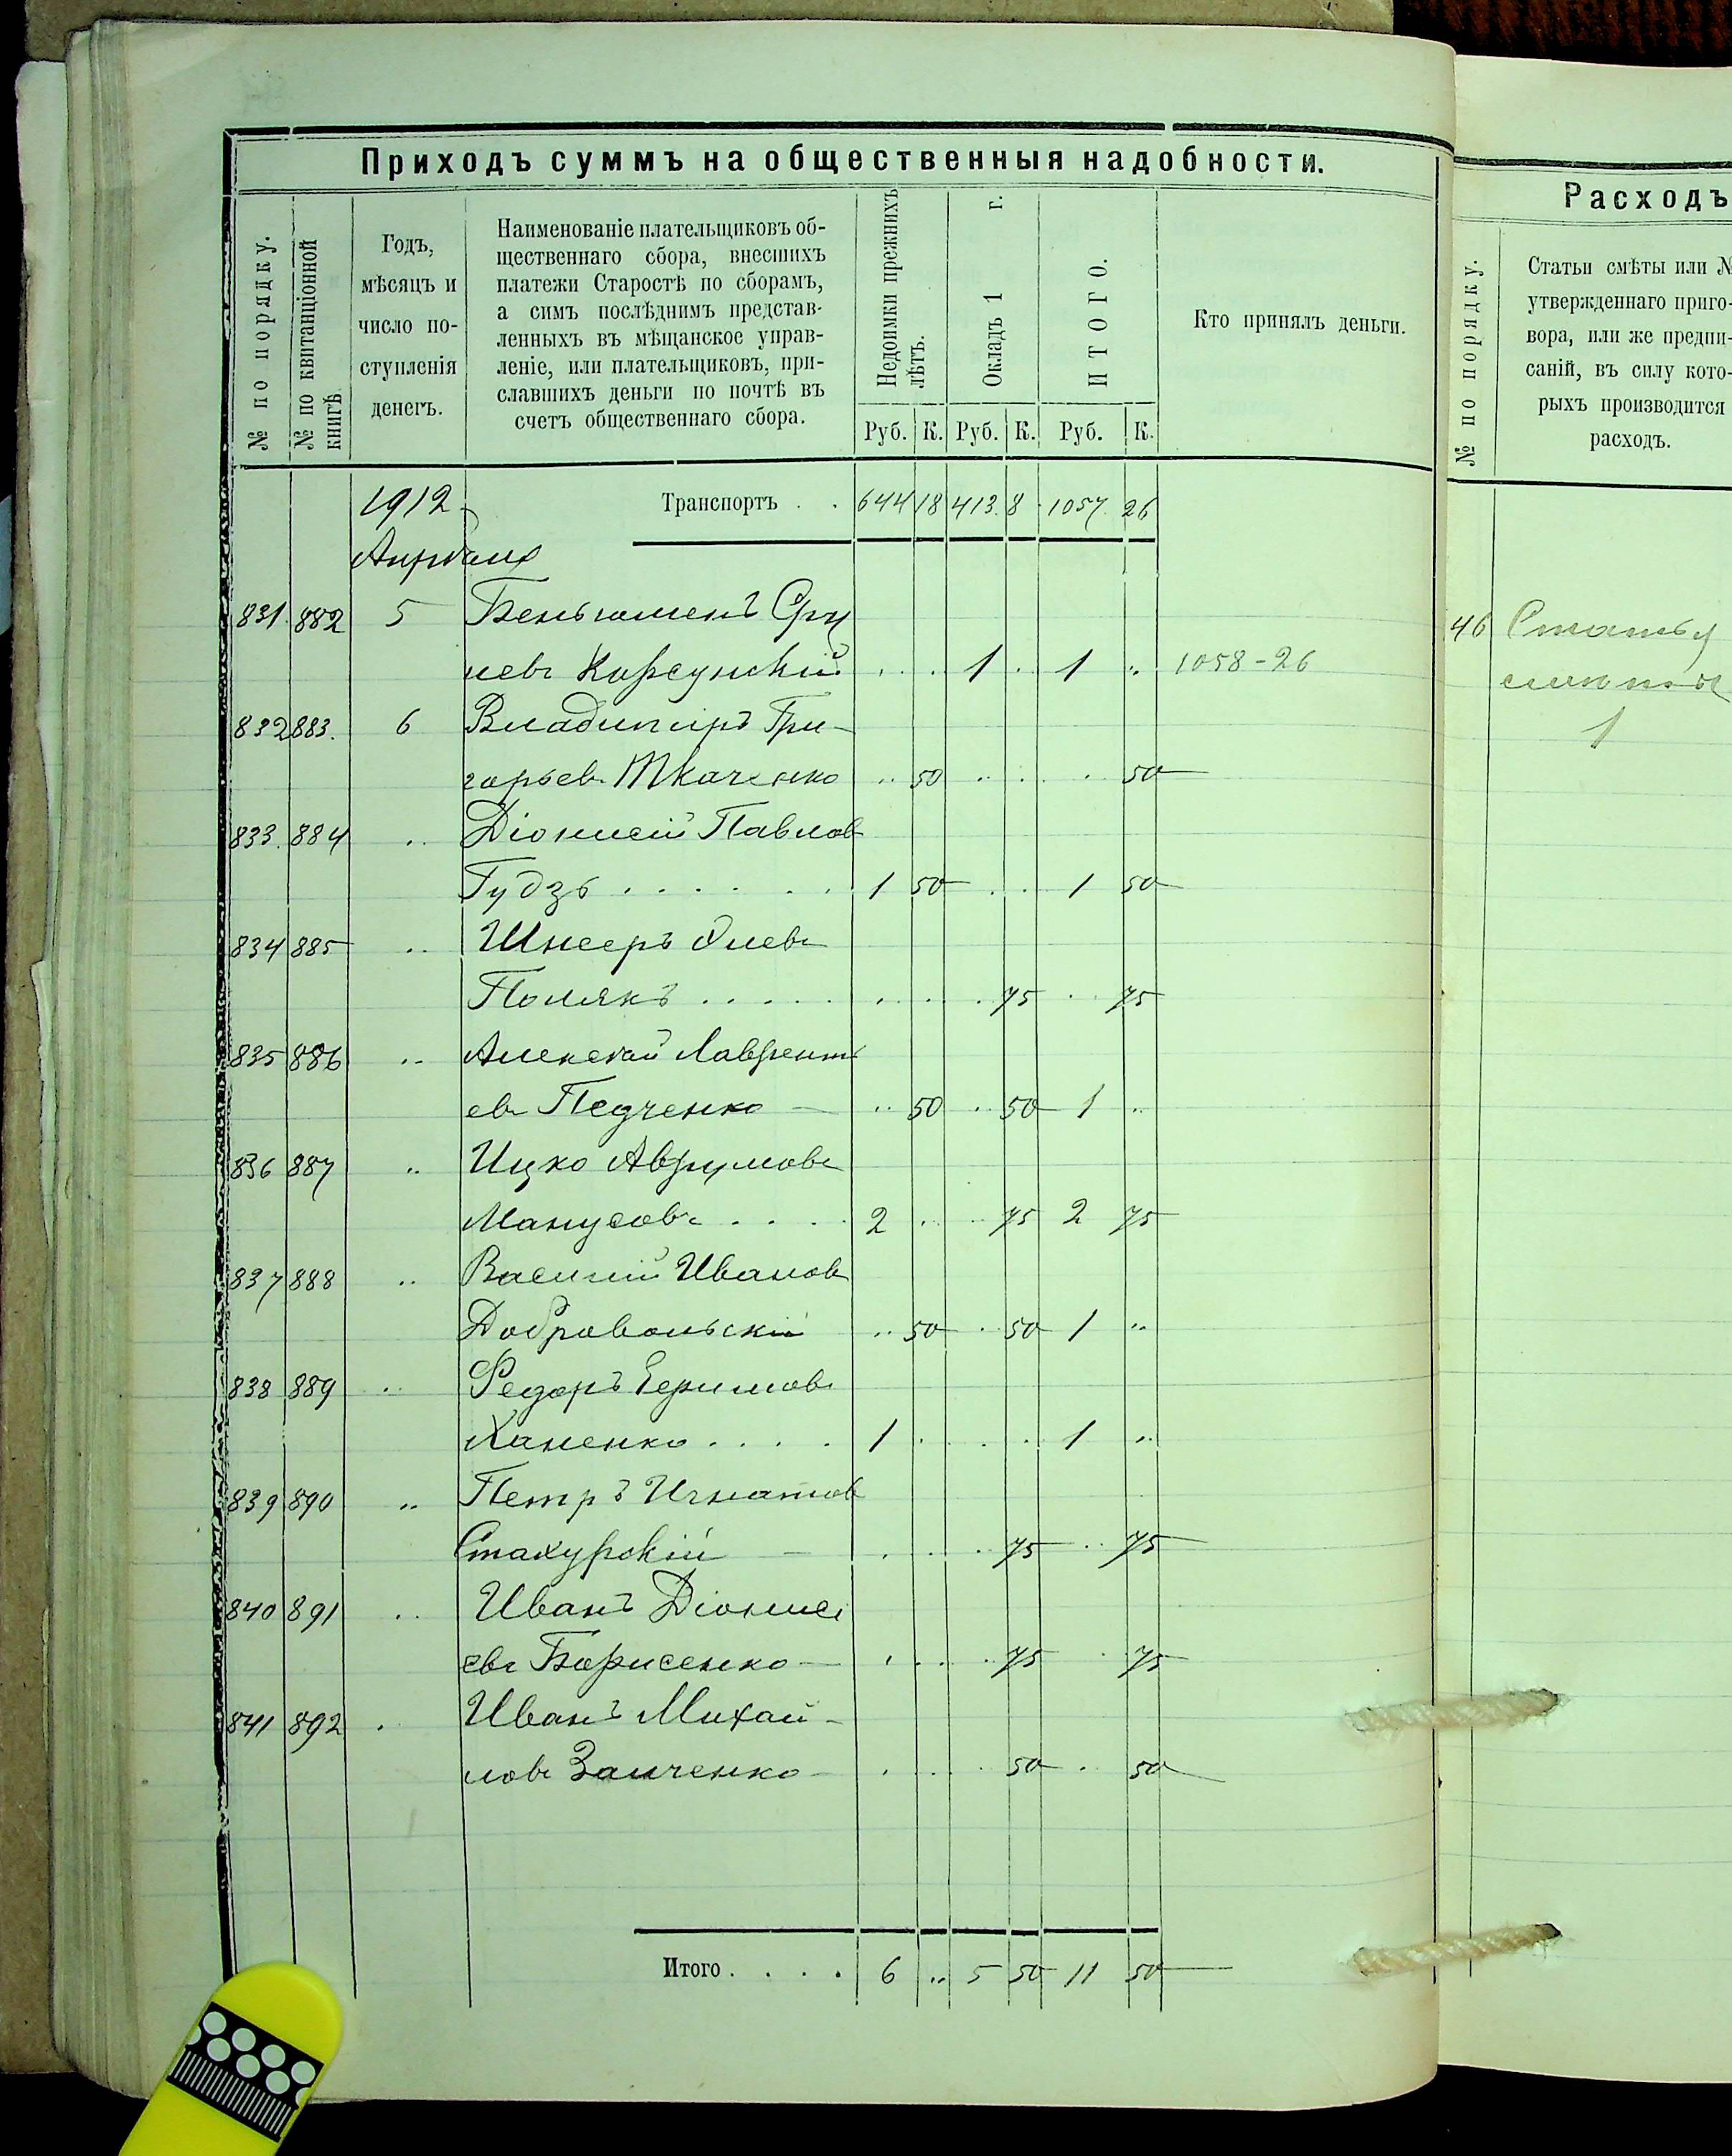 Приходъ суммъ на общественныя надобности.
№ по порядку.
№ по квитанціонной книгѣ.
Годъ,
мѣсяцъ и
число по-
ступленія
денегъ.
Наименованіе плательщиковъ об-
щественнаго сбора, внесшихъ
платежи Старостѣ по сборамъ,
а симъ послѣднимъ представ-
ленныхъ въ мѣщанское управ-
леніе, или плательщиковъ, при-
славшихъ деньги по почтѣ въ
счетъ общественнаго сбора.
Недоимки прежнихъ
лѣтъ.
Окладъ 1 г.
ИТОГО.
Кто принялъ деньги.
Руб. К. Руб. К. Руб. К.
1912 Транспортъ . . 644 18 413 8 1057 26
Апрѣль
831 882 5 Беньюменъ Сру
левъ Корсунскій . . . 1 . 1 .. 1058-26
832 883. 6 Владиміръ Гри-
горьев Ткаченко .. 50 .. . . 50
833. 884 .. Діонисій Павлов
Гудзь . . . . . . 1 50 . . 1 50
834 885 ..
Полякъ . . . . . . . . . 75 . . 75
835 886 .. Алексѣй Лаврентъ
ев Педченко .. 50 .. 50 1 ..
836 887 .. Ицко Аврумовъ
Манусовъ . . . . 2 . . . 75 2 75
837 888 .. Василій Иванов
Добровольскій .. 50 . 50 1 ..
838 889 .. Федоръ
Ханенко . . . . 1 . . . . 1 ..
839 890 .. Петръ Игнатов
Стахурскій . . . . 75 .. 75
840 891 .. Иванъ Діониси
евъ Борисенко . . . . 75 . 75
841 892 . Иванъ Михай-
ловъ Заиченко . . . 50 . 50
Итого . . . . 6 .. 5 50 11 50
Расходъ
№ по порядку.
Статьи смѣты или №
утвержденнаго приго-
вора, или же предпи-
саній, въ силу кото-
рыхъ производится
расходъ.
46 Статья
смѣты
1